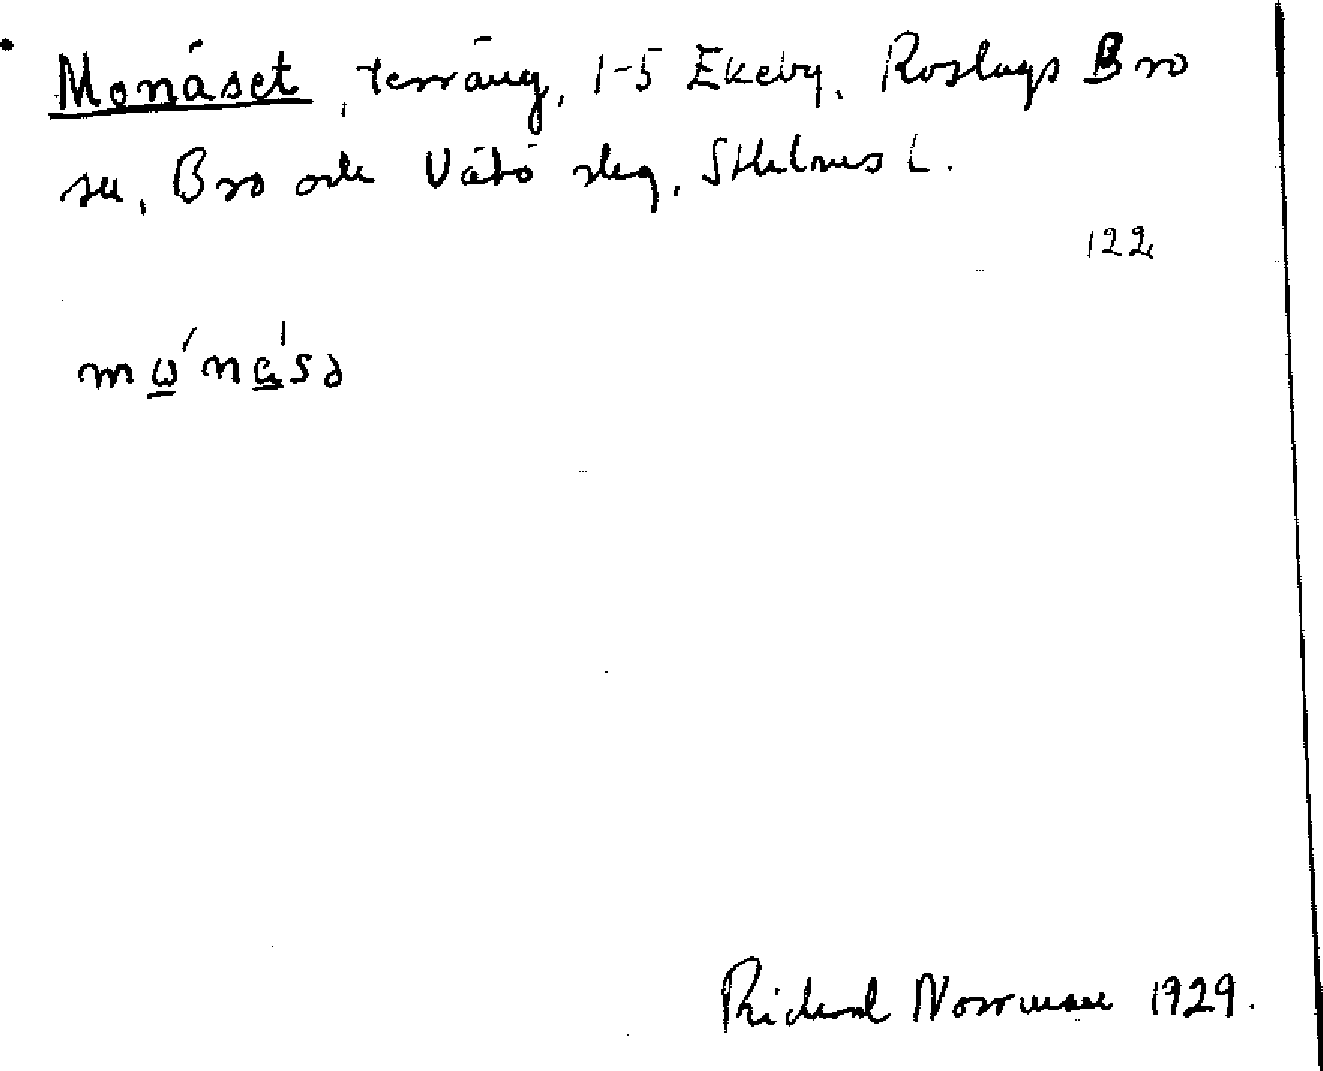 Monåset, terräng, 1-5 Ekeby, Roslags Bro
sn, Bro och Vätö skg, Sthlms L.
122
mώ̲na̲̍sə
Richard Norrman 1929.